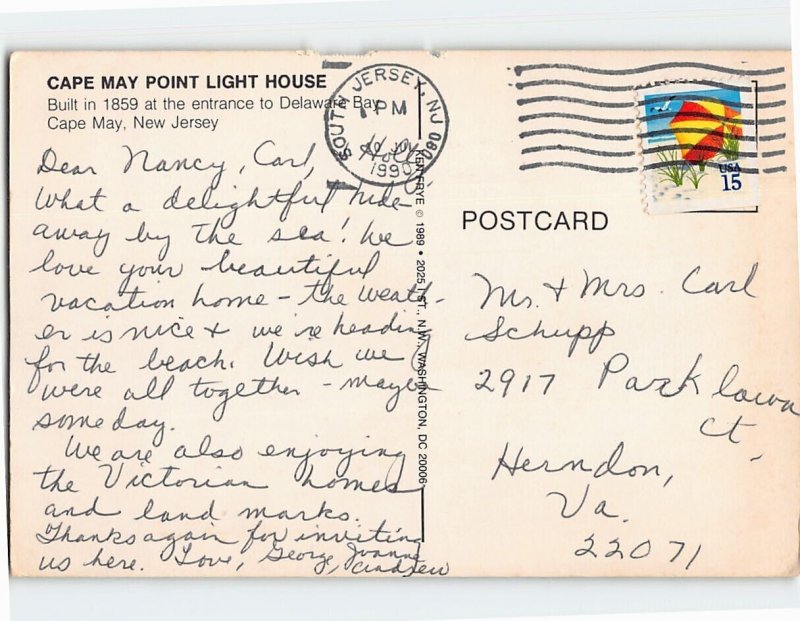 CAPE MAY POINT LIGHT HOUSE
Built in 1859 at the entrance to Delaware Bay
Cape May, New Jersey
SOUTH JERSEY, NJ 080
PM
JUL
1990
USA
15
POSTCARD
KEN FRYE © 1989 • 2025 I ST., N.W., WASHINGTON, DC 20006
Dear Nancy, Carl,
What a delightful hide-
away by the sea! We
love your beautiful
vacation home - the weath-
er is nice + we're heading
for the beach. Wish we
were all together - maybe
someday.
We are also enjoying
the Victorian homes
and land marks.
Thanks again for inviting
us here. Love, George, Joanne,
Andrew
Mr. + Mrs. Carl
Schupp
2917 Parklawn
Ct.
Herndon,
Va.
22071